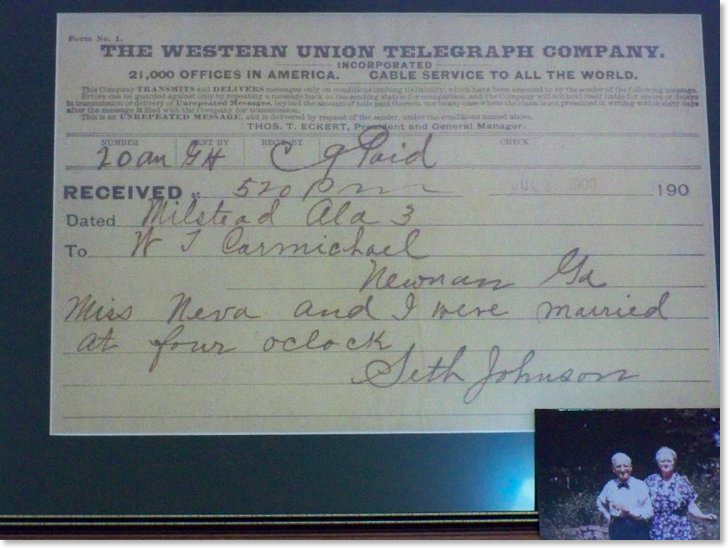 Form No. 1.
THE WESTERN UNION TELEGRAPH COMPANY.
INCORPORATED
21,000 OFFICES IN AMERICA. CABLE SERVICE TO ALL THE WORLD.
This Company TRANSMITS and DELIVERS messages only on conditions limiting its liability, which have been assented to by the sender of the following message.
Errors can be guarded against only by repeating a message back to the sending station for comparison, and the Company will not hold itself liable for errors or delays
in transmission or delivery of Unrepeated Messages, beyond the amount of tolls paid thereon, nor in any case where the claim is not presented in writing within sixty days
after the message is filed with the Company for transmission.
This is an UNREPEATED MESSAGE, and is delivered by request of the sender, under the conditions named above.
THOS. T. ECKERT, President and General Manager.
NUMBER SENT BY REC'D BY CHECK
GH Paid
RECEIVED at 520 pm JUL 1900 190
Dated Milstead Ala 3
To W T Carmichael
Newnan Ga
Miss Neva and I were married
at four oclock
Seth Johnson